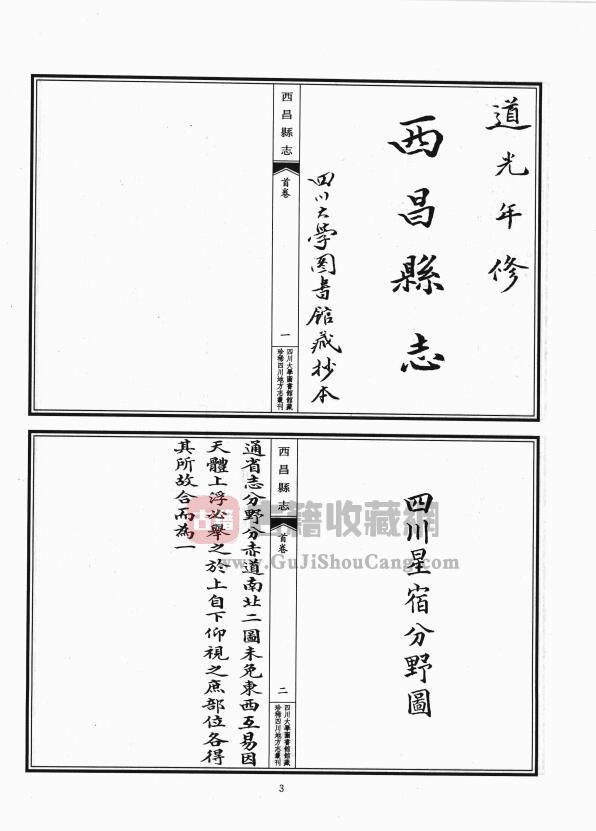 道光年修
西昌縣志
四川大學图書館藏抄本
西昌縣志
首卷
一
四川大學圖書館館藏
珍稀四川地方志叢刊
四川星宿分野圖
西昌縣志
首卷
二
四川大學圖書館館藏
珍稀四川地方志叢刊
通省志分野分赤道南北二圖未免東西互易因
天體上浮必舉之於上自下仰視之庶部位各得
其所故合而為一
古籍
古籍收藏网
www.GuJiShouCang.com
3